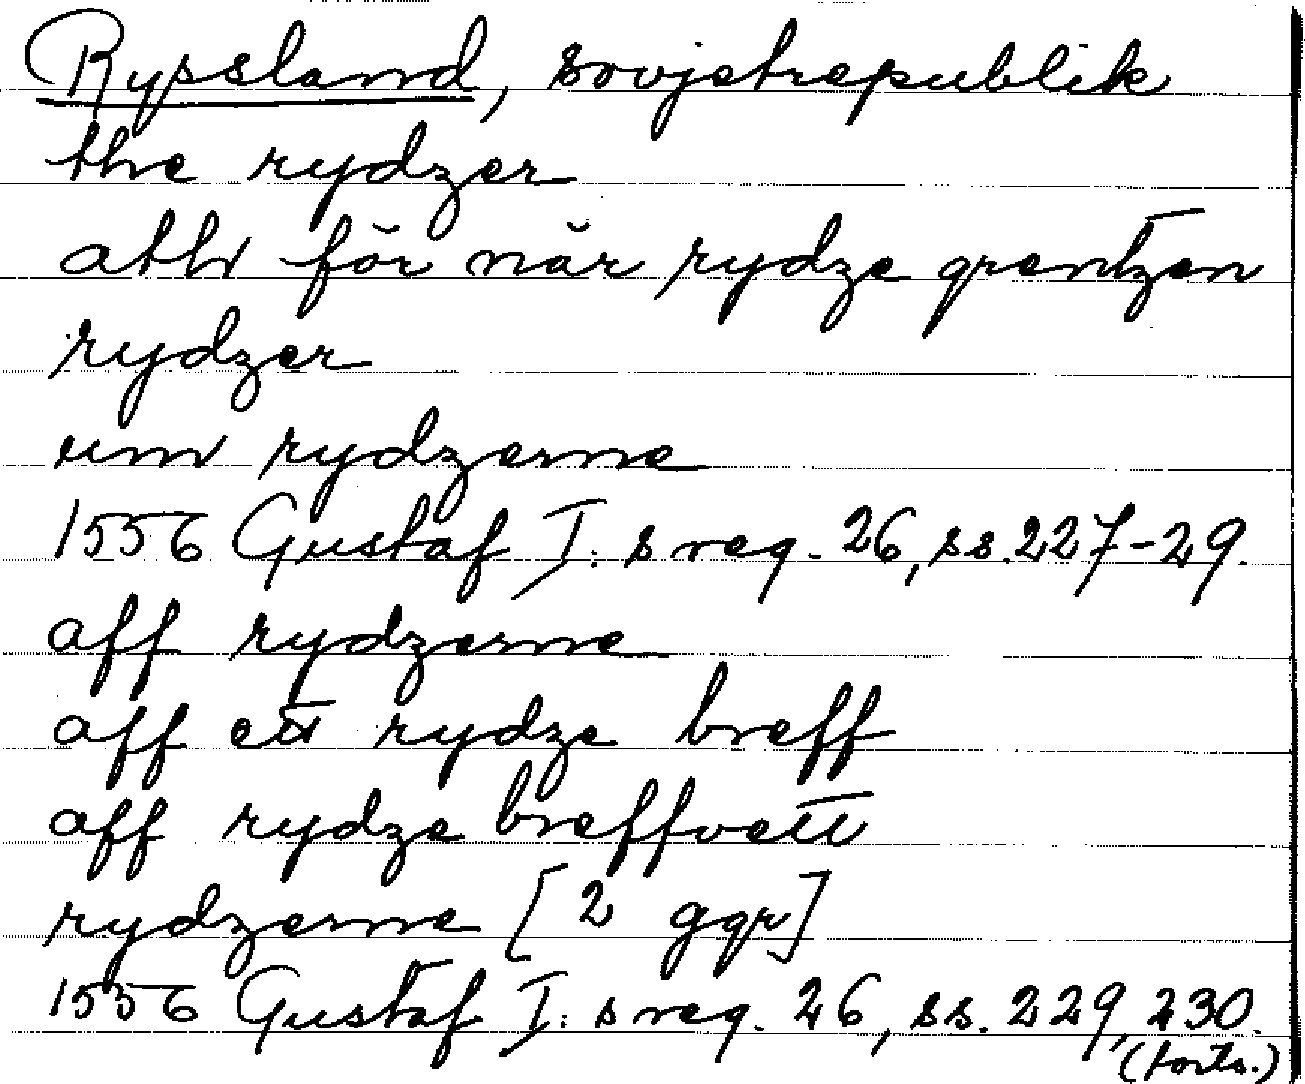 Ryssland, sovjetrepublik
the rydzer
athv för när rydze grentzen
rydzer
um rydzerne
1556 Gustaf I:s reg. 26, ss. 227-29.
aff rydzerne
aff ett rydze breff
aff rydze breffvett
rydzerne [2 ggr]
1556 Gustaf I:s reg. 26, ss. 229, 230.
(forts.)